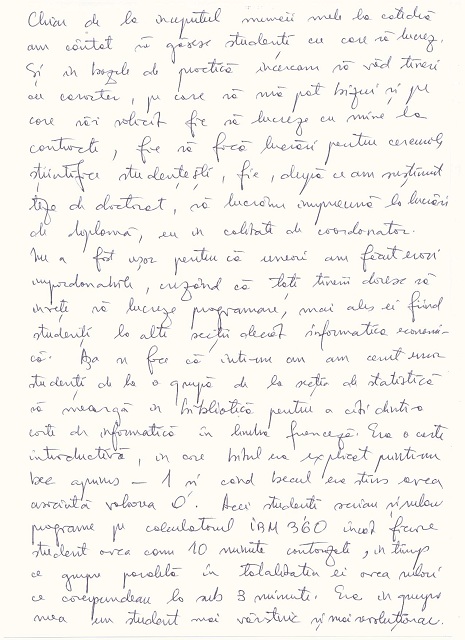 Chiar de la inceputul muncii mele la catedră
am căutat să găsesc studenți cu care să lucrez.
Și in bazele de practică incercam să văd tineri
cu caracter, pe care să mă pot bizui și pe
care să-i solicit fie să lucreze cu mine la
contracte, fie să facă lucrări pentru cercurile
științifice studențești, fie, după ce am susținut
teza de doctorat, să lucrăm impreună la lucrări
de diplomă, eu in calitate de coordonator.
Nu a fost ușor pentru că uneori am făcut erori
impardonabile, crezând că toți tinerii doresc să
invețe să lucreze programare, mai ales ei fiind
studenți la alte secții decât informatica economi-
că. Așa se face că intr-un an am cerut unor
studenți de la o grupă de la secția de statistică
să meargă in bibliotecă pentru a citi dintr-o
carte de informatică in limba franceză. Era o carte
introductivă, in care bitul era explicat printr-un
bec aprins – 1 și cand becul era stins avea
asociată valoarea 0. Acei studenți scriau și rulau
programe pe calculatorul IBM 360 incat fiecare
student avea cam 10 minute contorizate, in timp
ce grupa paralelă in totalitatea ei avea rulări
ce corespundeau la sub 3 minute. Era in grupa
mea un student mai vârstnic și mai revoluționar.